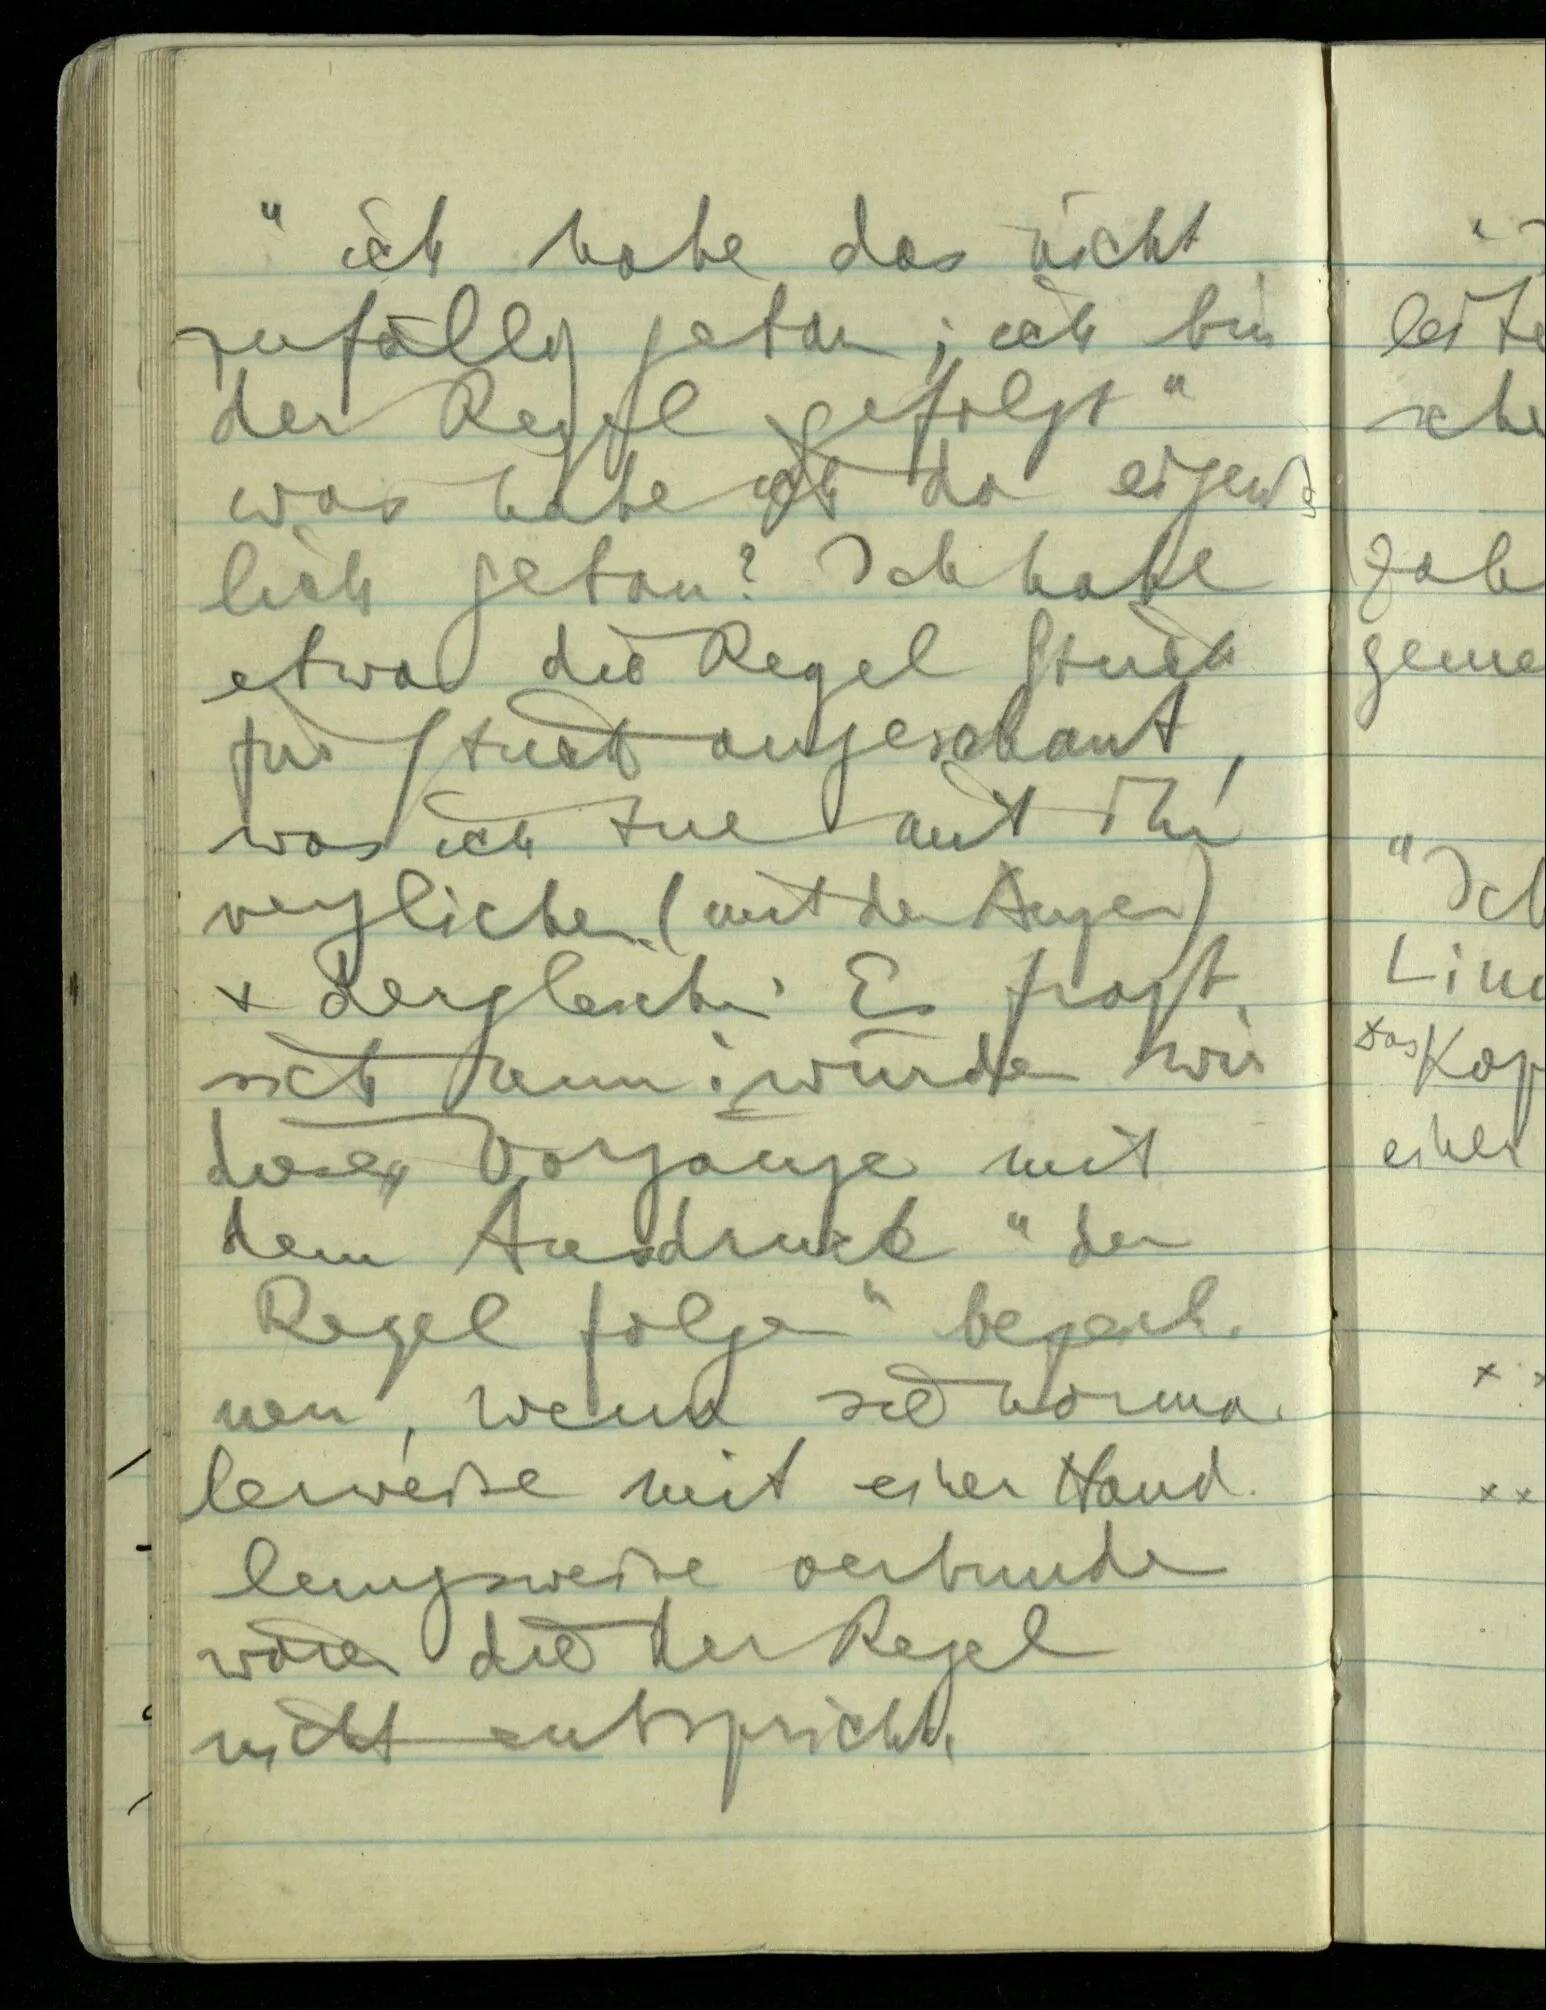 " ich habe das nicht
zufällig getan; ich bin
der Regel gefolgt"
was habe ich da eigent-
lich getan? Ich habe
etwa die Regel Stück
für Stück angeschaut,
was ich tue mit ihr
verglichen (mit den Augen)
& dergleichen. Es fragt
sich nun: würden wir
diese Vorgänge mit
dem Ausdruck "der
Regel folgen" bezeich-
nen, wenn sie norma-
lerweise mit einer Hand-
lungsweise verbunden
wären die der Regel
nicht entspricht.
leite
sche
Zah
geme
"Ich
Lin
das Kop
einer
x x
x x